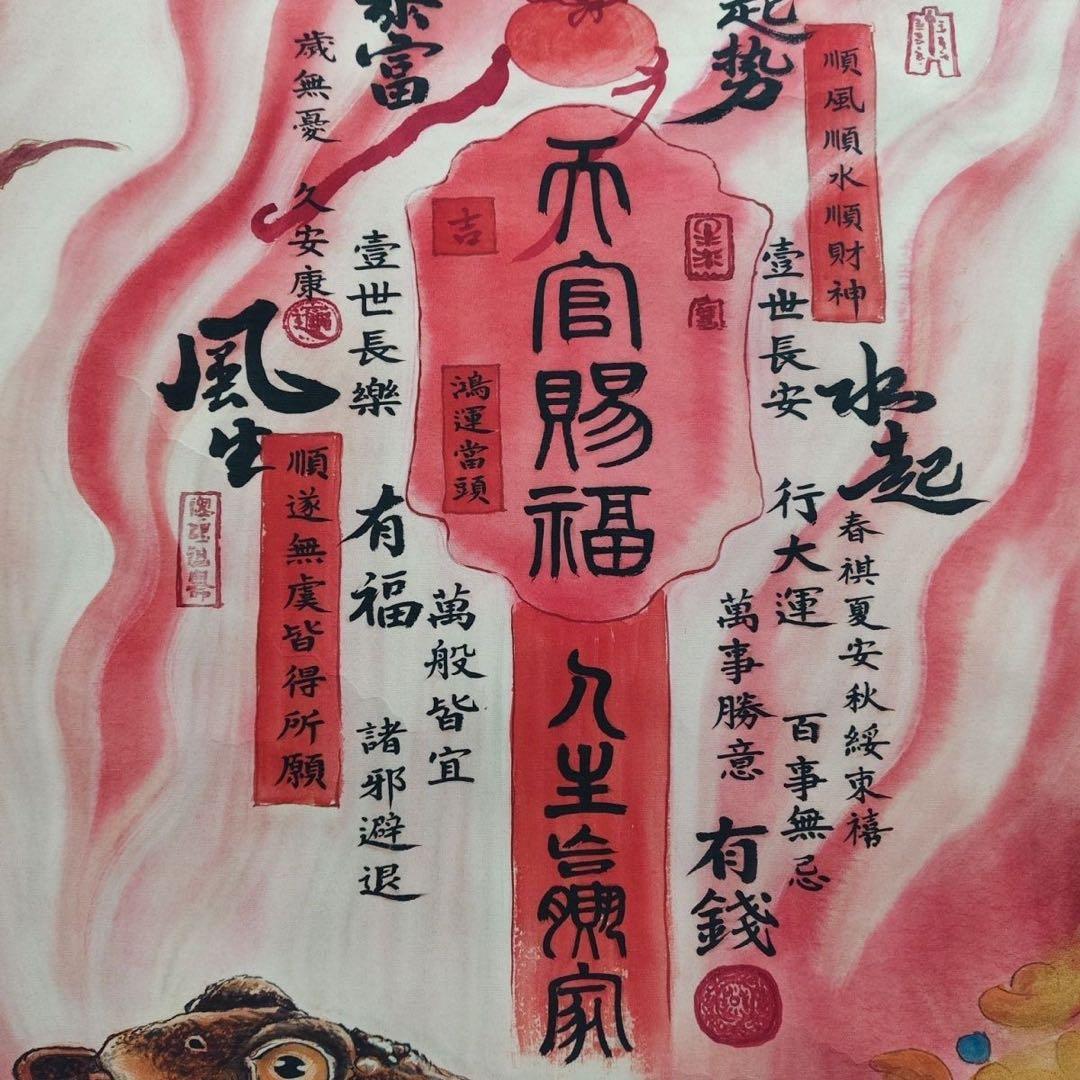 起势
順風順水順財神
水起
春祺夏安秋綏束禧
壹世長安
行大運
百事無忌
萬事勝意
有錢
天官賜福
人生贏家
吉
鴻運當頭
萬般皆宜
暴富
壹世長樂
有福
諸邪避退
歲無憂
久安康
風生
順遂無虞皆得所願